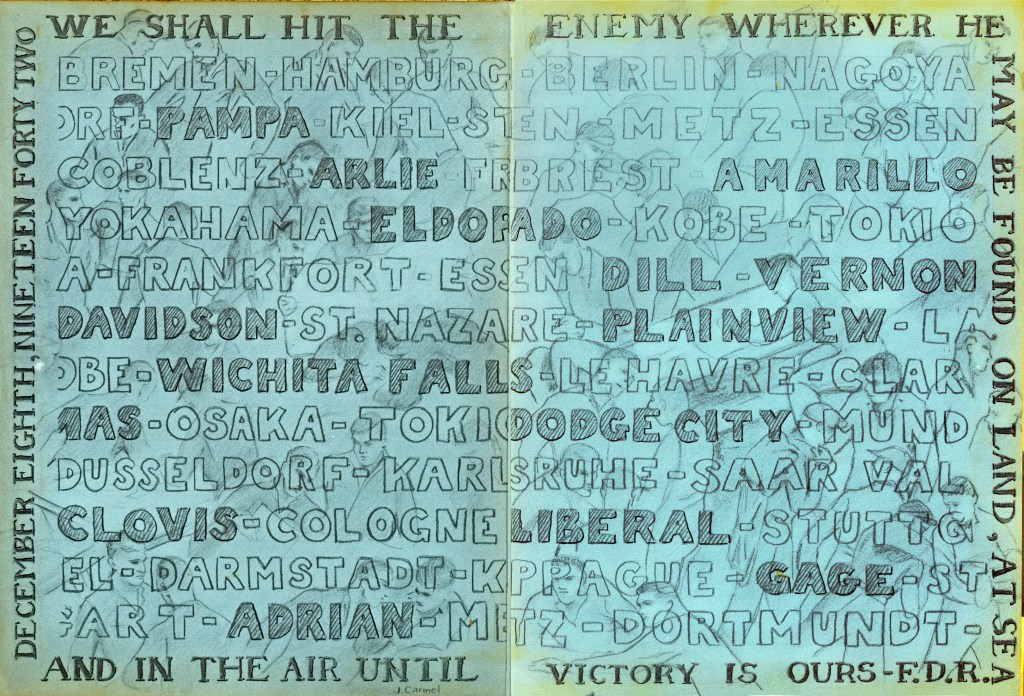 WE SHALL HIT THE ENEMY WHEREVER HE
MAY BE FOUND, ON LAND, AT SEA
DECEMBER EIGHTH, NINETEEN FORTY TWO
BREMEN-HAMBURG-BERLIN-NAGOYA
ORF-PAMPA-KIEL-STEN-METZ-ESSEN
COBLENZ-ARLIE-FRBREST-AMARILLO
YOKAHAMA-ELDORADO-KOBE-TOKIO
A-FRANKFORT-ESSEN DILL-VERNON
DAVIDSON-ST. NAZARE-PLAINVIEW-LA
OBE-WICHITA FALLS-LE HAVRE-CLAR
MAS-OSAKA-TOKIO DODGE CITY-MUND
DUSSELDORF-KARLSRUHE-SAAR VAL
CLOVIS-COLOGNE LIBERAL-STUTTG
EL-DARMSTADT-KPPRAGUE-GAGE-ST
ART-ADRIAN-METZ-DORTMUNDT-
AND IN THE AIR UNTIL VICTORY IS OURS-F.D.R.
J. Carmel